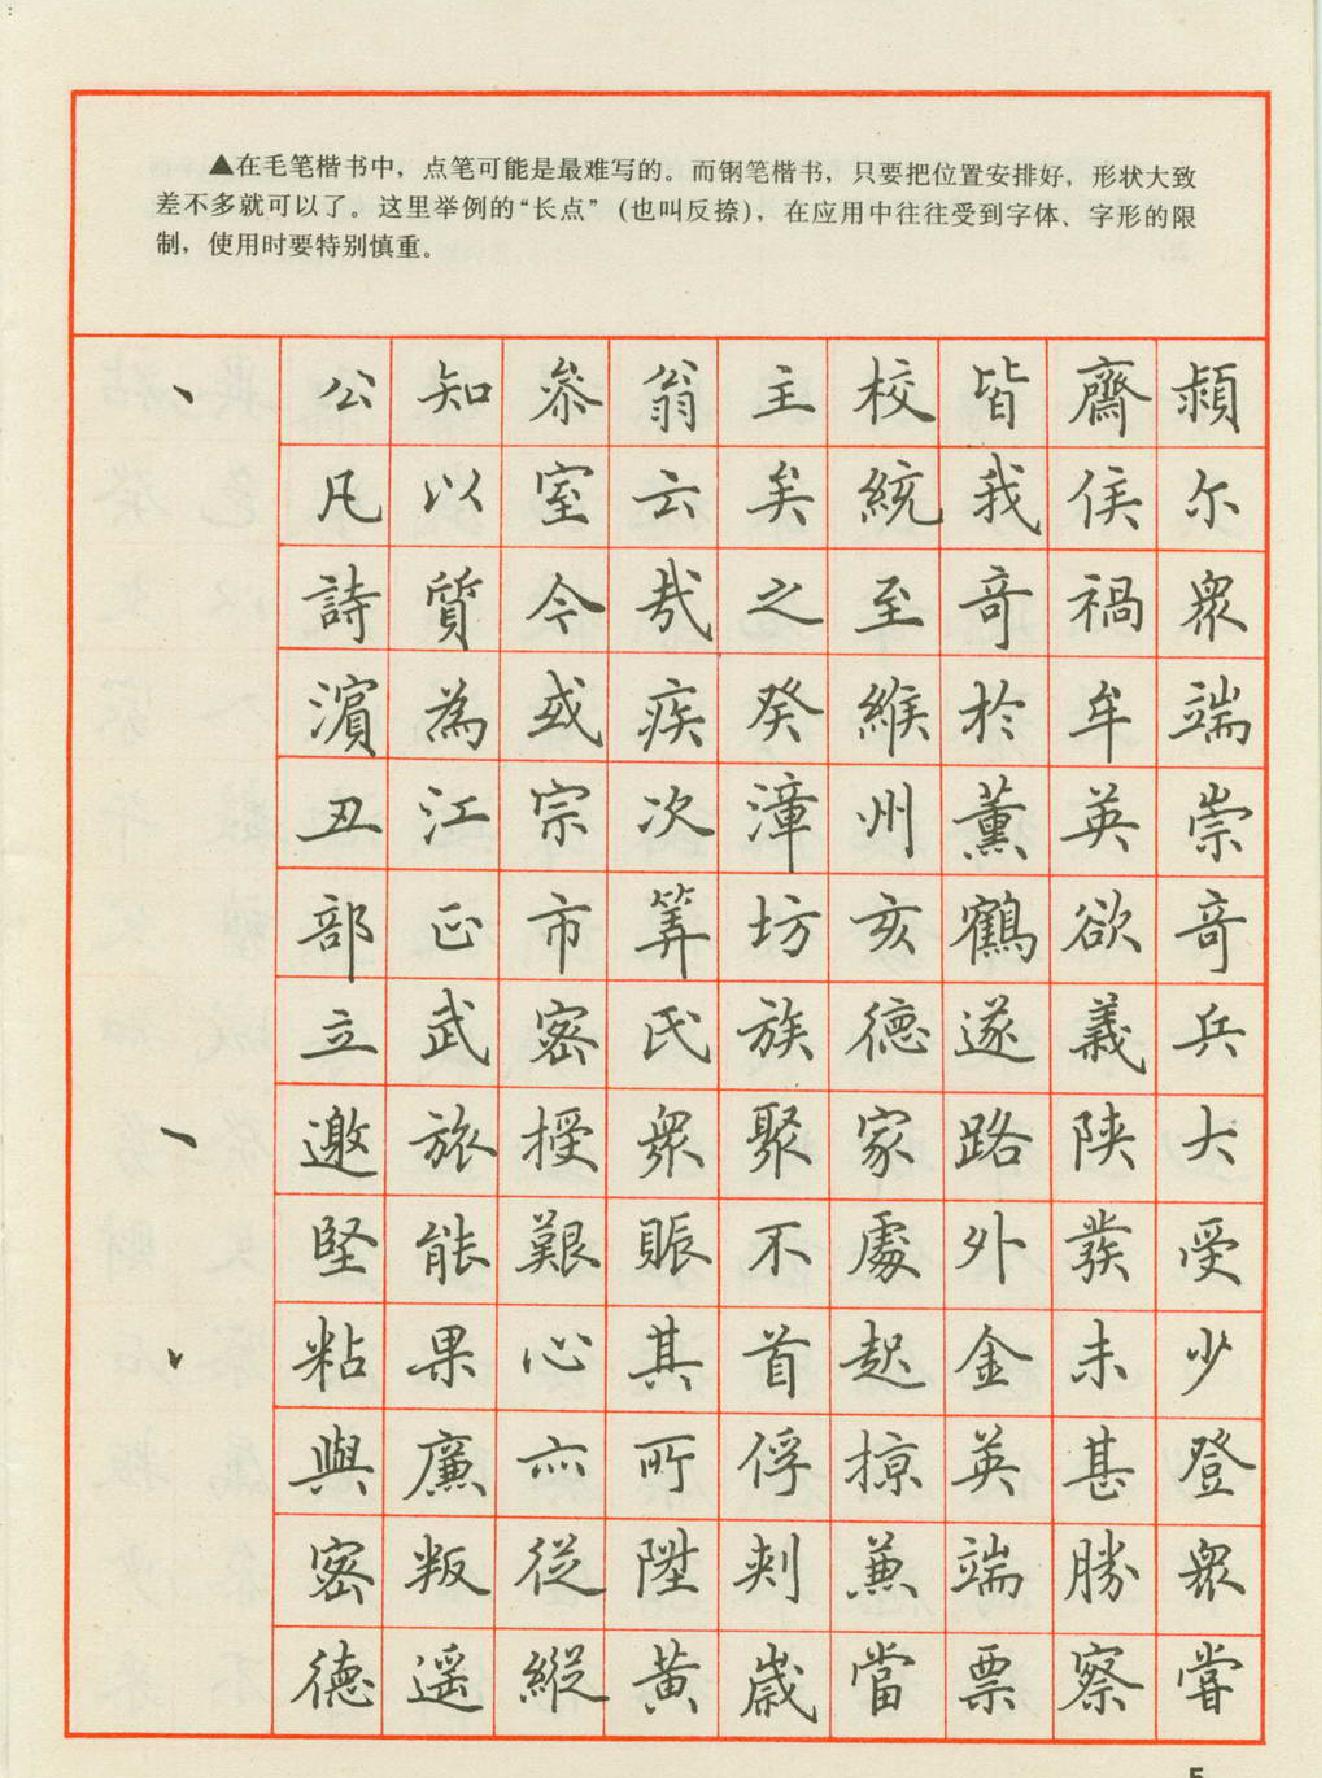 ▲在毛笔楷书中，点笔可能是最难写的。而钢笔楷书，只要把位置安排好，形状大致
差不多就可以了。这里举例的“长点”（也叫反捺），在应用中往往受到字体、字形的限
制，使用时要特别慎重。
公知叅翁主校皆齋潁
凡以室云矣統我侯尔
詩質今哉之至竒禍衆
濵為或疾癸維於牟端
丑江宗次漳州薫英崇
部正市筭坊亥鶴欲竒
立武密氏族德遂義兵
邀旅授衆聚家路陕大
堅能艱賑不處外發受
粘果心其首起金未少
與廉亦所俘掠英甚登
密叛從陞刺兼端勝衆
德遥縱黄歲當票察嘗
5